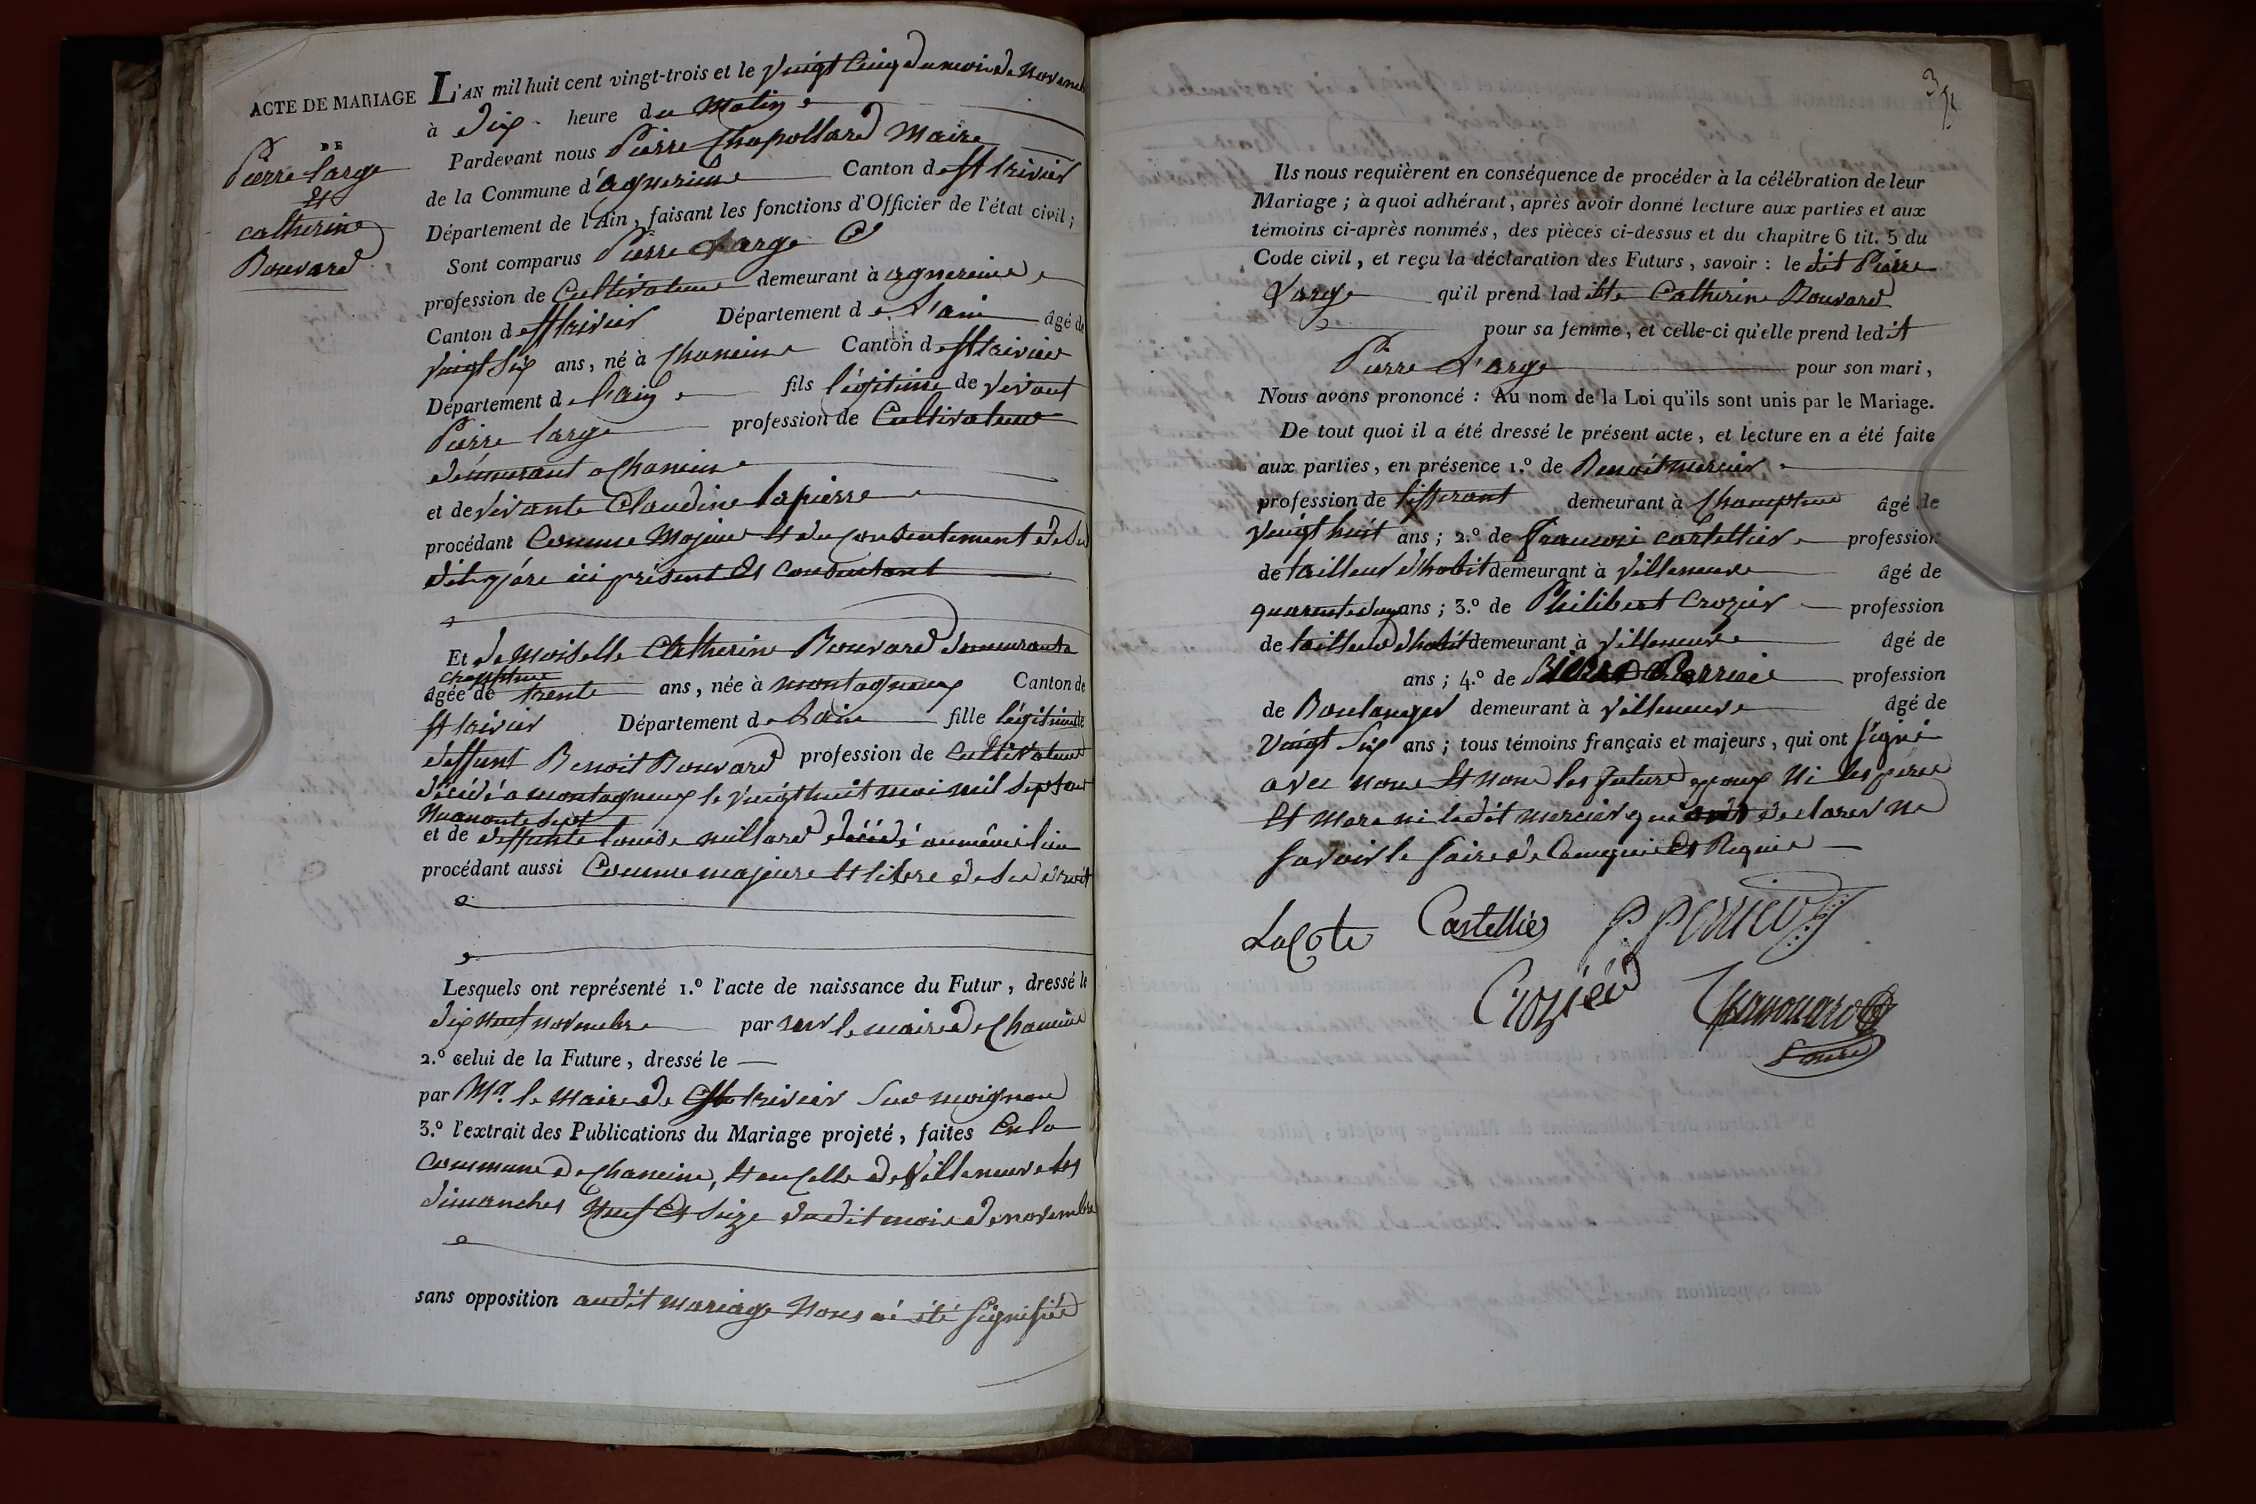 ACTE DE MARIAGE
DE
Pierre Large
et
catherine
Bouvard
L'AN mil huit cent vingt-trois et le vingt cinq du mois de novemb
à dix heure du matin
Pardevant nous Pierre Chapollard Maire
de la Commune d'agnereins Canton de St trivier
Département de l'Ain, faisant les fonctions d'Officier de l'état civil;
Sont comparus Pierre Large
profession de Cultivateur demeurant à agnereins
Canton de St trivier Département de l'ain âgé de
vingt six ans, né à Chaneins Canton de St trivier
Département de l'ain fils légitime de vivant
Pierre large profession de Cultivateur
demeurant a Chaneins
et de vivante Claudine lapierre
procédant Comme Majeur et du consentement de sed
dit père ici présent et consentant
Et demoiselle Catherine Bouvard demeurante
âgée de trente ans, née à montagneux Canton de
St trivier Département de l'ain fille légitime de
deffunt Benoit Bouvard profession de Cultivateur
décédé a montagneux le vingt huit mai mil sept cent
et de deffunte louise millard décédé au même lieu
procédant aussi Comme majeure et libre de ses droits
Lesquels ont représenté 1.º l'acte de naissance du Futur, dressé le
dix neuf novembre par mr le maire de Chaneins
2.º celui de la Future, dressé le
par Mr. le Maire de St trivier sur moignan
3.º l'extrait des Publications du Mariage projeté, faites en la
commune de Chaneins, et en celle de Villeneuve les
dimanches neuf et seize dudit mois de novembre
sans opposition audit mariage nous ai été signifiée
3
Ils nous requièrent en conséquence de procéder à la célébration de leur
Mariage; à quoi adhérant, après avoir donné lecture aux parties et aux
témoins ci-après nommés, des pièces ci-dessus et du chapitre 6 tit. 5 du
Code civil, et reçu la déclaration des Futurs, savoir: le dit Pierre
Large qu'il prend ladite Catherine Bouvard
pour sa femme, et celle-ci qu'elle prend ledit
Pierre Large pour son mari,
Nous avons prononcé: Au nom de la Loi qu'ils sont unis par le Mariage.
De tout quoi il a été dressé le présent acte, et lecture en a été faite
aux parties, en présence 1.º de Benoit mercier
profession de tisserant demeurant à âgé de
vingt huit ans; 2.º de francois castellier profession
de tailleur d'habit demeurant à villeneuve âgé de
quarente deux ans; 3.º de Philibert Crozier profession
de tailleur d'habit demeurant à villeneuve âgé de
ans; 4.º de profession
de Boulanger demeurant à villeneuve âgé de
vingt six ans; tous témoins français et majeurs, qui ont signé
avec nous et non les futurs epoux ni les peres
et mere ni ledit mercier que declarer ne
savoir le faire de ce enquis et Requis
Lacote Castellier P. Perrier
Crozier
maire